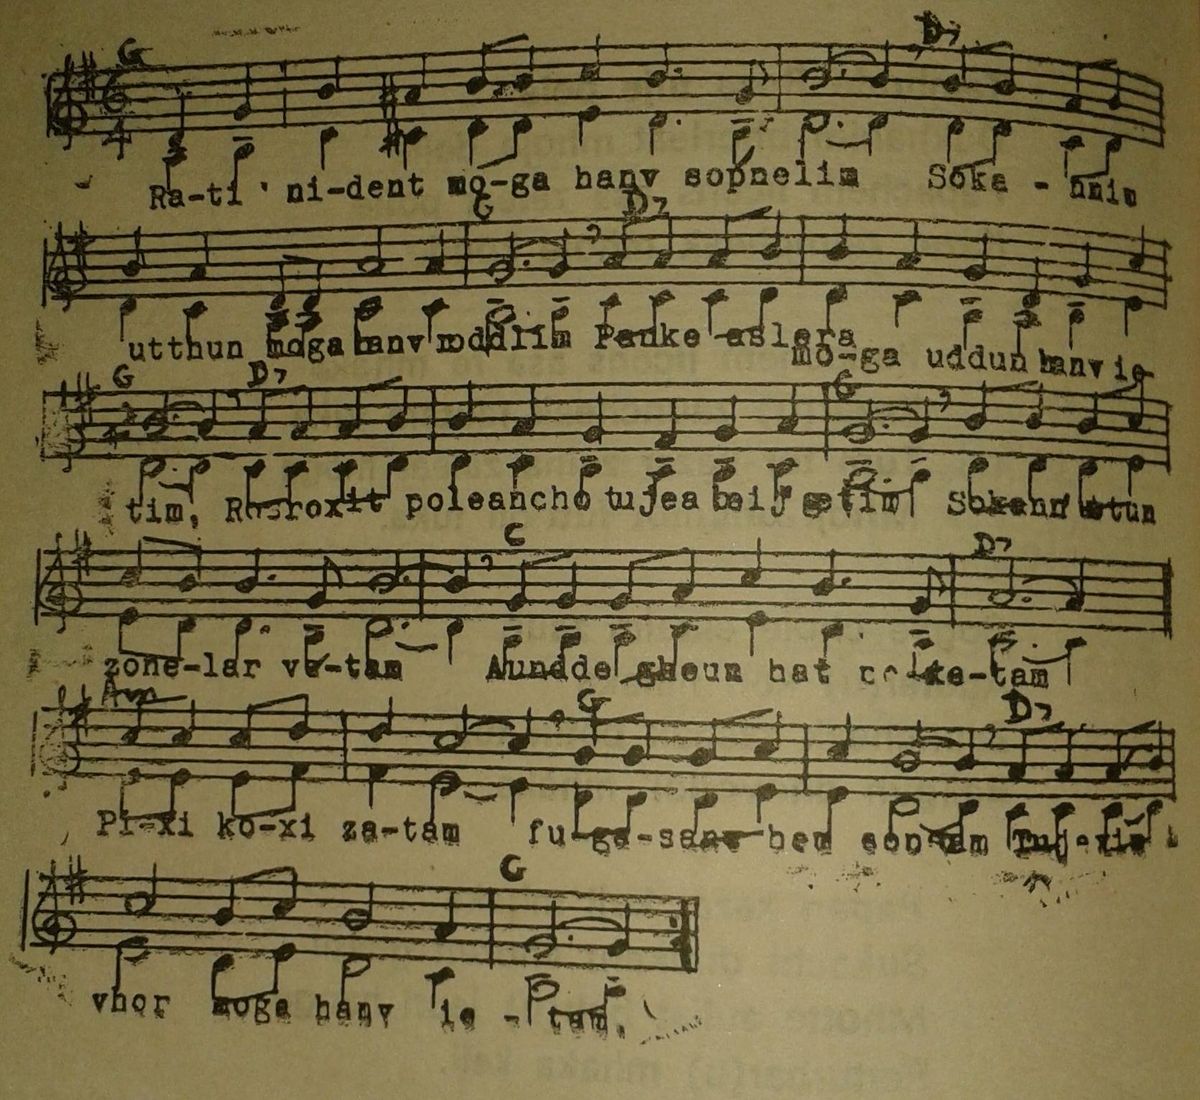 G D7
Ra-ti ni-dent mo-ga hanv sopnelim Soka - nnim
G D7
utthun moga hanv roddlim Panke aslera
mo-ga uddun hanv ie
G D7 G
tim, Rosroxit poleancho tujea beij getim Sokann utun
G D7
zone-lar ve-tam Aundde gheun hat ke-tam
Am G D7
Pi-xi ko-xi za-tam fu ga-sanv hen
vhor moga hanv ie - tam.
G